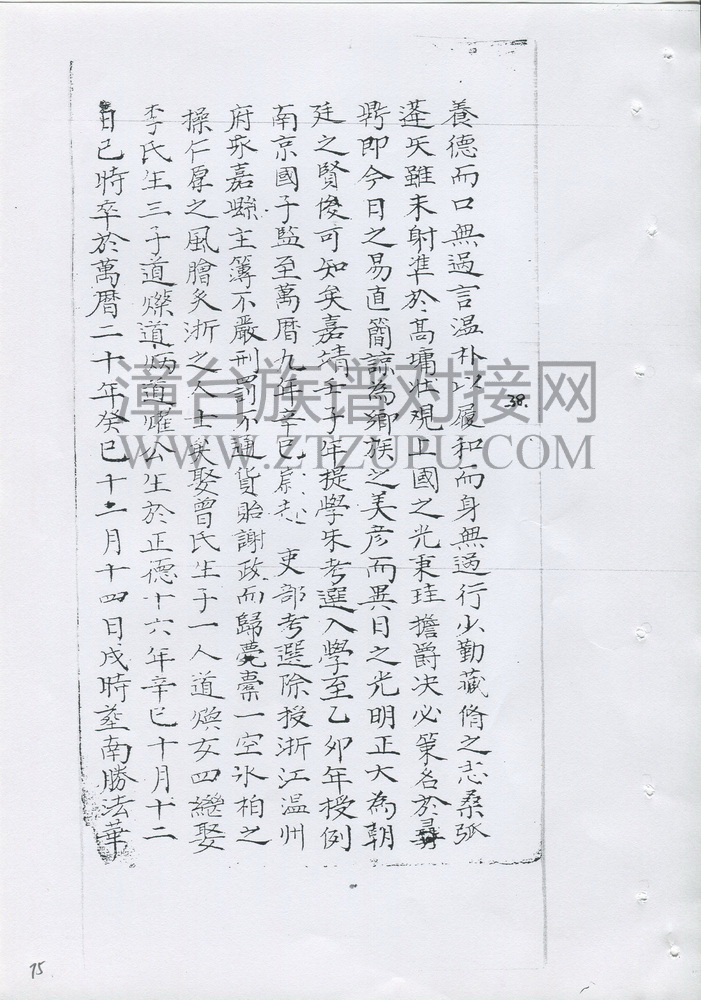 養德而口無過言温朴以履和而身無過行少勤藏脩之志桑弧
蓬矢雖未射準於髙墉壯觀上國之光秉珪擔爵决必策名於彛
鼎即今日之易直簡諒為鄉族之美彦而異日之光明正大為朝
廷之賢俊可知矣嘉靖壬子年提學朱考選入學至乙夘年授例
南京國子監至萬曆九年辛巳 赴 吏部考選除授浙江温州
府永嘉縣主簿不嚴刑罰不通貨貽謝政而歸 橐一空氷栢之
操仁厚之風膾炙浙之人士矣娶曾氏生子一人道煥女四繼娶
李氏生三子道燦道炳道燿公生於正德十六年辛巳十月十二
日巳時卒於萬曆二十年癸巳十二月十四日戌時塟南勝法華
38.
漳台族谱对接网
WWW.ZTZUPU.COM
75